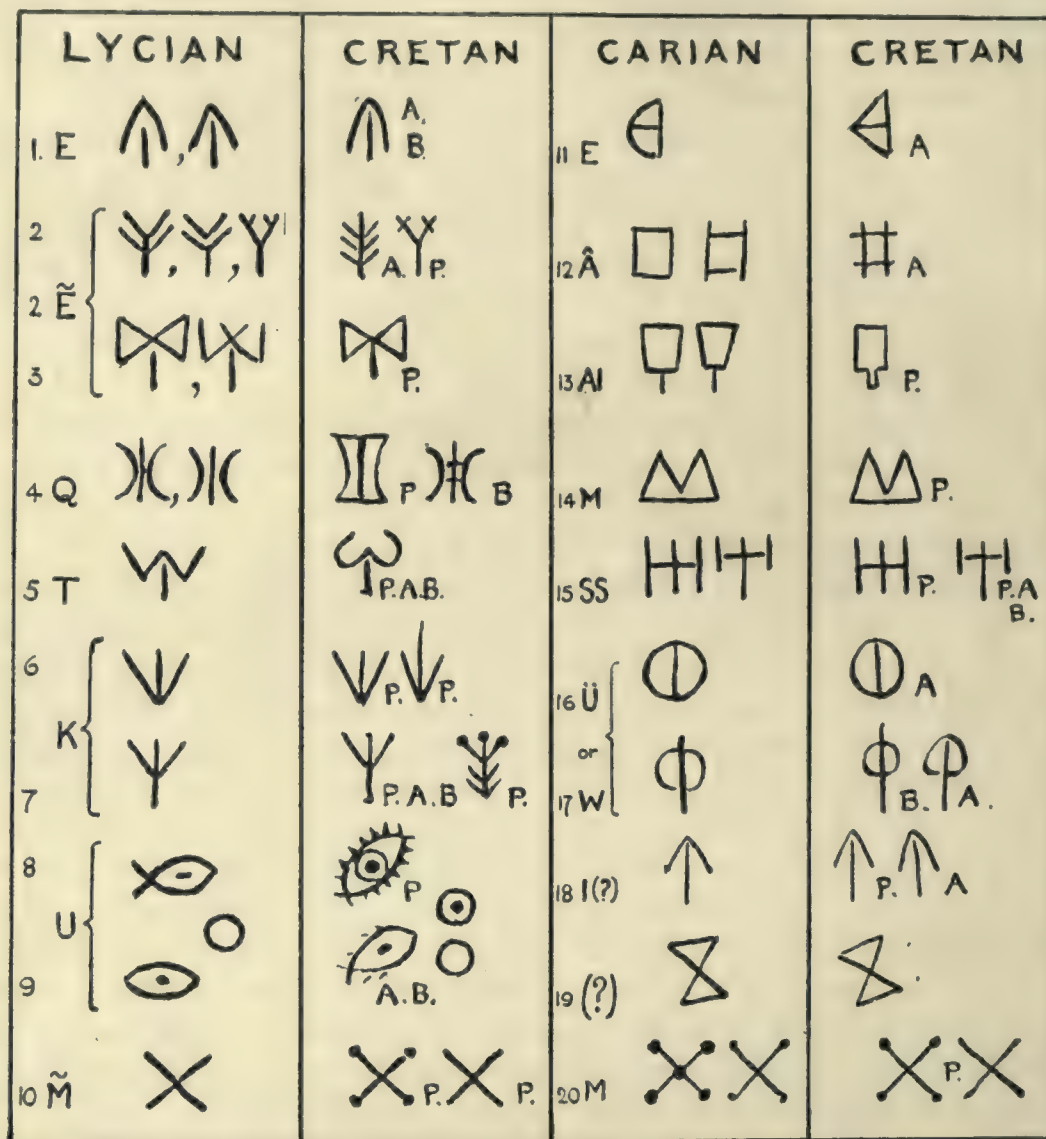 LYCIAN CRETAN CARIAN CRETAN
1. E A. B. 11 E A
2 A. P. 12 Â A
2 Ẽ
3 P. 13 AI P.
4 Q P B 14 M P.
5 T P.A.B. 15 SS P. P.A B.
6 P. P. 16 Ü A
K or
7 P.A.B P. 17 W B. A.
8 P 18 I(?) P. A
U
9 A.B. 19 (?)
10 M̃ P. P. 20 M P.